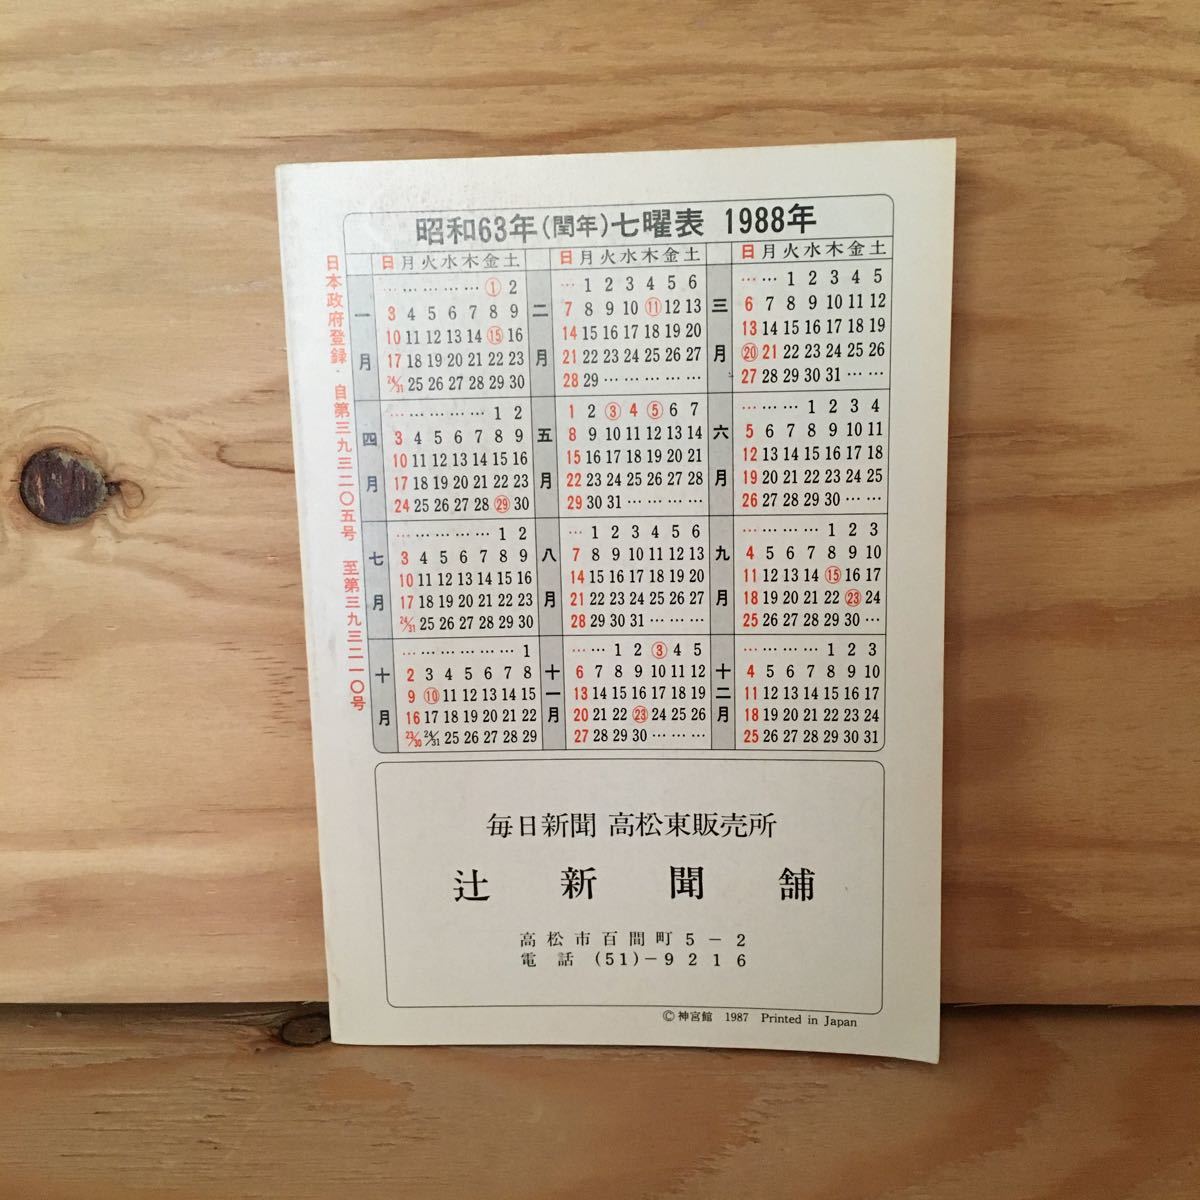 昭和63年(閏年)七曜表 1988年
日本政府登録・自第三九三二〇五号 至第三九三二一〇号
一月
日月火水木金土
… … … … … ① 2
3 4 5 6 7 8 9
10 11 12 13 14 ⑮ 16
17 18 19 20 21 22 23
24/31 25 26 27 28 29 30
二月
日月火水木金土
… 1 2 3 4 5 6
7 8 9 10 ⑪ 12 13
14 15 16 17 18 19 20
21 22 23 24 25 26 27
28 29 … … … … …
三月
日月火水木金土
… … 1 2 3 4 5
6 7 8 9 10 11 12
13 14 15 16 17 18 19
⑳ 21 22 23 24 25 26
27 28 29 30 31 … …
四月
… … … … … 1 2
3 4 5 6 7 8 9
10 11 12 13 14 15 16
17 18 19 20 21 22 23
24 25 26 27 28 ㉙ 30
五月
1 2 ③ 4 ⑤ 6 7
8 9 10 11 12 13 14
15 16 17 18 19 20 21
22 23 24 25 26 27 28
29 30 31 … … … …
六月
… … … 1 2 3 4
5 6 7 8 9 10 11
12 13 14 15 16 17 18
19 20 21 22 23 24 25
26 27 28 29 30 … …
七月
… … … … … 1 2
3 4 5 6 7 8 9
10 11 12 13 14 15 16
17 18 19 20 21 22 23
24/31 25 26 27 28 29 30
八月
… 1 2 3 4 5 6
7 8 9 10 11 12 13
14 15 16 17 18 19 20
21 22 23 24 25 26 27
28 29 30 31 … … …
九月
… … … … 1 2 3
4 5 6 7 8 9 10
11 12 13 14 ⑮ 16 17
18 19 20 21 22 ㉓ 24
25 26 27 28 29 30 …
十月
… … … … … … 1
2 3 4 5 6 7 8
9 ⑩ 11 12 13 14 15
16 17 18 19 20 21 22
23/30 24/31 25 26 27 28 29
十一月
… … 1 2 ③ 4 5
6 7 8 9 10 11 12
13 14 15 16 17 18 19
20 21 22 ㉓ 24 25 26
27 28 29 30 … … …
十二月
… … … … 1 2 3
4 5 6 7 8 9 10
11 12 13 14 15 16 17
18 19 20 21 22 23 24
25 26 27 28 29 30 31
毎日新聞 高松東販売所
辻新聞舗
高松市百間町5-2
電話 (51)-9216
©神宮館 1987 Printed in Japan